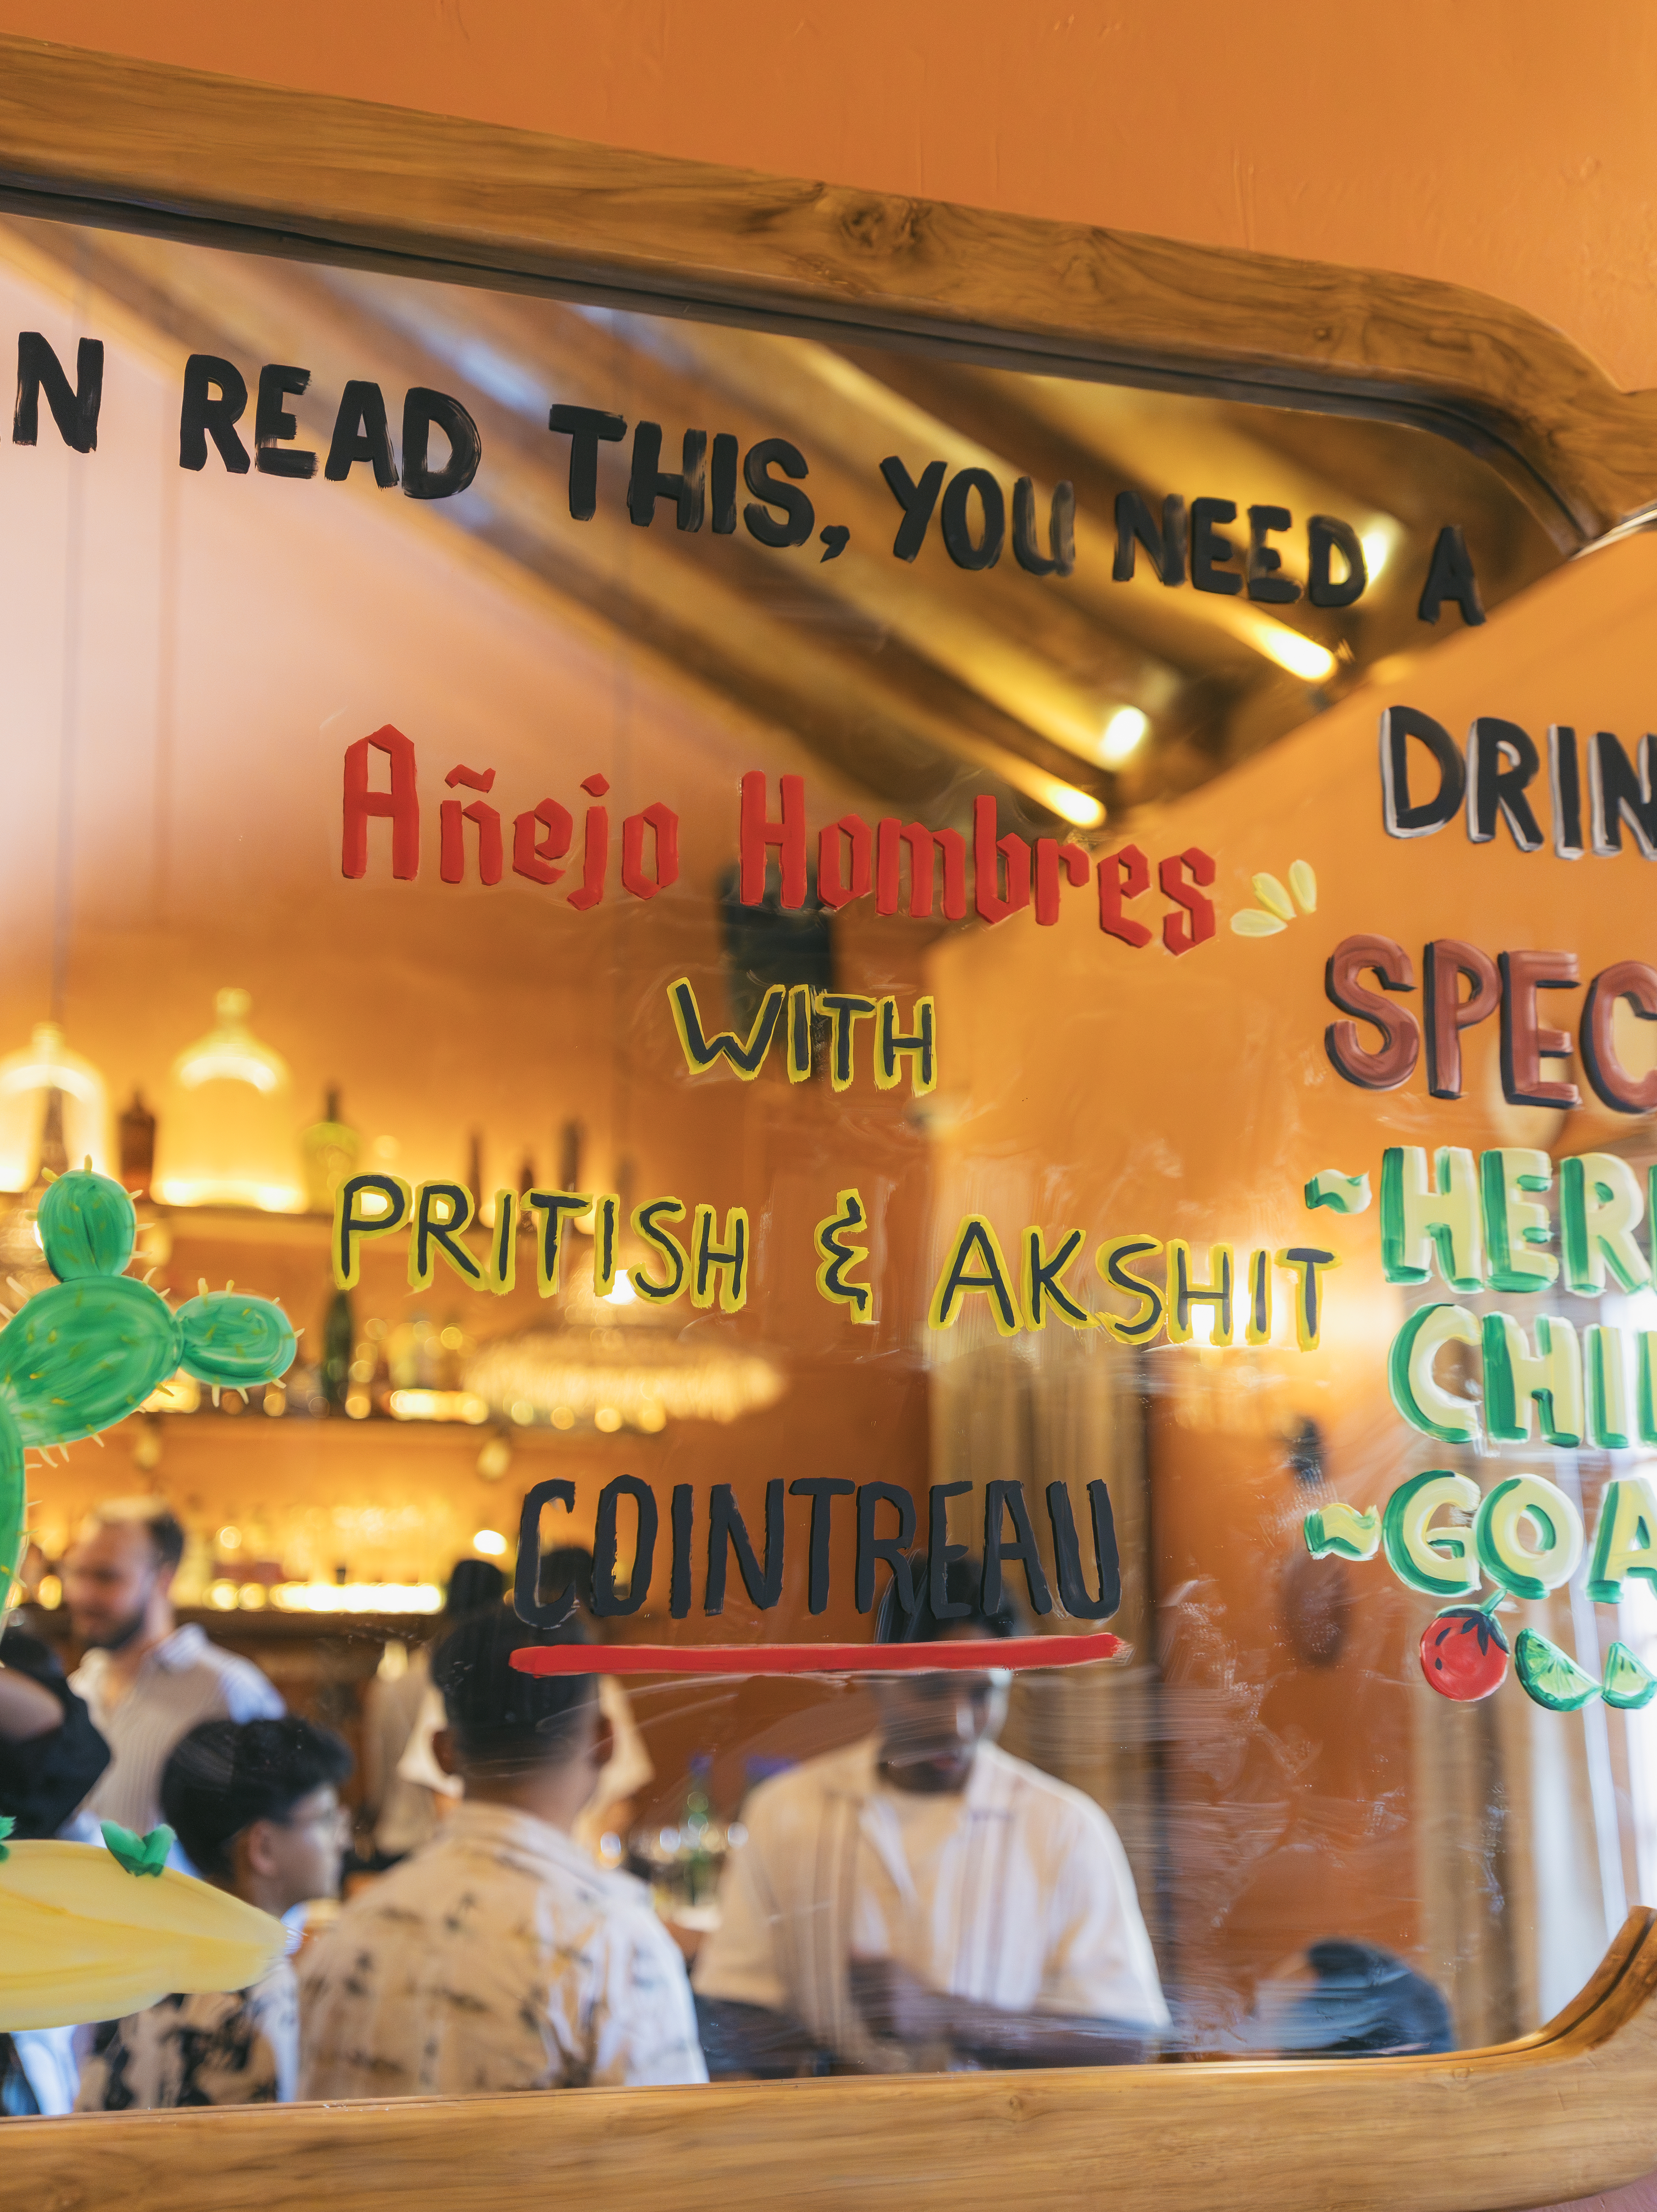 N READ THIS, YOU NEED A
DRIN
Añejo Hombres
SPEC
WITH
PRITISH & AKSHIT
~HER
CHI
COINTREAU
~GOA